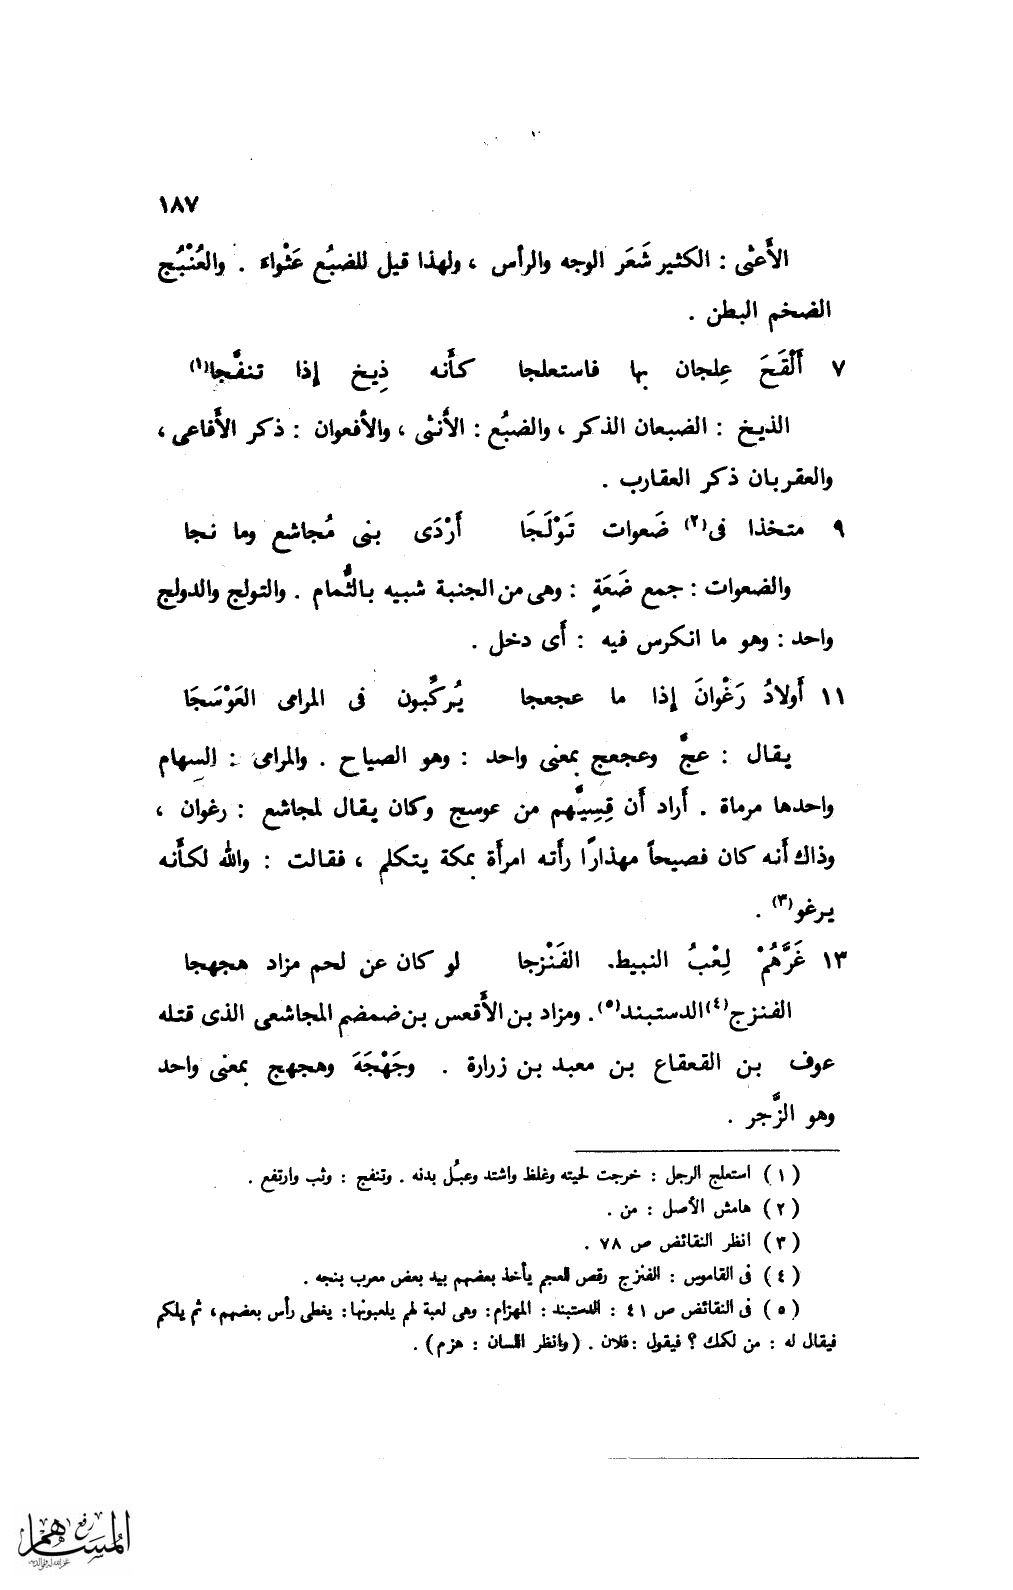 ١٨٧
الأَعثى : الكثير شَعَر الوجه والرأس ، ولهذا قيل للضبُع عَثْواء . والعُنْبُج
الضخم البطن .
٧ أَلْقَحَ عِلجان بها فاستعلجا كأَنه ذِيخ إذا تنفَّجا(١)
الذيخ : الضبعان الذكر ، والضبُع : الأَنثى ، والأفعوان : ذكر الأَفاعى ،
والعقربان ذكر العقارب .
٩ متخذا فى(٢) ضَعوات تَوْلَجَا أَرْدَى بنى مُجاشع وما نجا
والضعوات : جمع ضَعَةٍ : وهى من الجنبة شبيه بالثُّمام . والتولج والدولج
واحد : وهو ما انكرس فيه : أَى دخل .
١١ أَولادُ رَغْوانَ إذا ما عجعجا يُركِّبون فى المرامى العَوْسَجَا
يقال : عجَّ وعجعج بمعنى واحد : وهو الصياح . والمرامى : السهام
واحدها مرماة . أَراد أَن قِسِيَّهم من عوسج وكان يقال لمجاشع : رغوان ،
وذاك أَنه كان فصيحاً مهذارًا رأَته امرأَة بمكة يتكلم ، فقالت : والله لكأَنه
يرغو(٣) .
١٣ غَرَّهُمْ لِعْبُ النبيط الفَنْزجا لو كان عن لحم مزاد هجهجا
الفنزج(٤) الدستبند(٥) . ومزاد بن الأَقعس بن ضمضم المجاشعى الذى قتله
عوف بن القعقاع بن معبد بن زرارة . وجَهْجَهَ وهجهج بمعنى واحد
وهو الزَّجر .
(١) استعلج الرجل : خرجت لحيته وغلظ واشتد وعبُل بدنه . وتنفج : وثب وارتفع .
(٢) هامش الأصل : من .
(٣) انظر النقائض ص ٧٨ .
(٤) فى القاموس : الفنزج رقص للعجم يأخذ بعضهم بيد بعض معرب بنجه .
(٥) فى النقائض ص ٤١ : الدستبند : المهزام : وهى لعبة لهم يلعبونها : يغطى رأس بعضهم ، ثم يلكم
فيقال له : من لكمك ؟ فيقول : فلان . (وانظر اللسان : هزم) .
رفع
المساهم